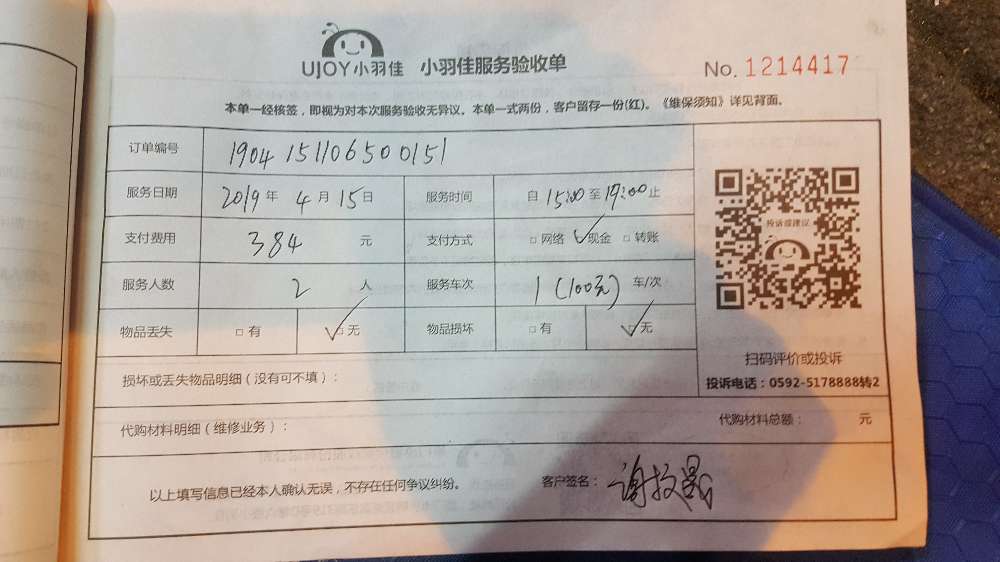 UJOY小羽佳 小羽佳服务验收单 No. 1214417
本单一经核签，即视为对本次服务验收无异议。本单一式两份，客户留存一份(红)。《维保须知》详见背面。
订单编号 19041511065000151
服务日期 2019年 4月 15日 服务时间 自 15:00 至 19:00 止
支付费用 384 元 支付方式 □网络 ☑现金 □转账
服务人数 2 人 服务车次 1 (100元) 车/次
物品丢失 □有 ☑无 物品损坏 □有 ☑无
投诉或建议
扫码评价或投诉
投诉电话：0592-5178888转2
损坏或丢失物品明细（没有可不填）：
代购材料明细（维修业务）： 代购材料总额： 元
以上填写信息已经本人确认无误，不存在任何争议纠纷。 客户签名：